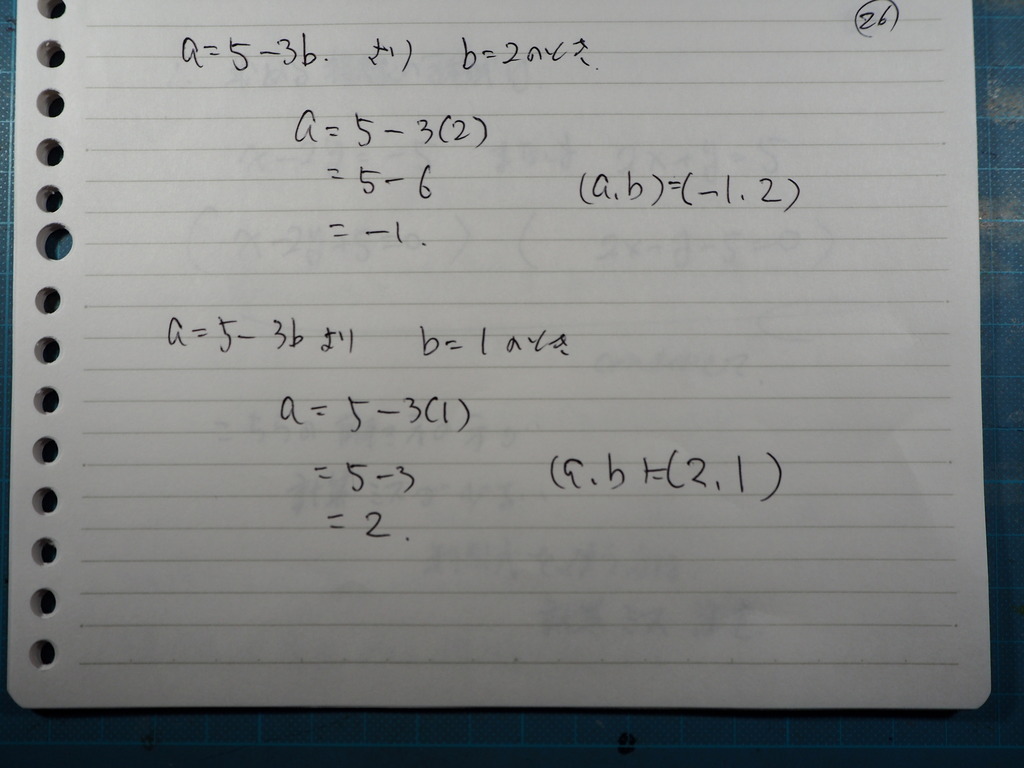 26
a=5-3b. より b=2のとき.
a=5-3(2)
=5-6 (a.b)=(-1.2)
=-1.
a=5-3b より b=1のとき
a=5-3(1)
=5-3 (a.b)=(2,1)
=2.